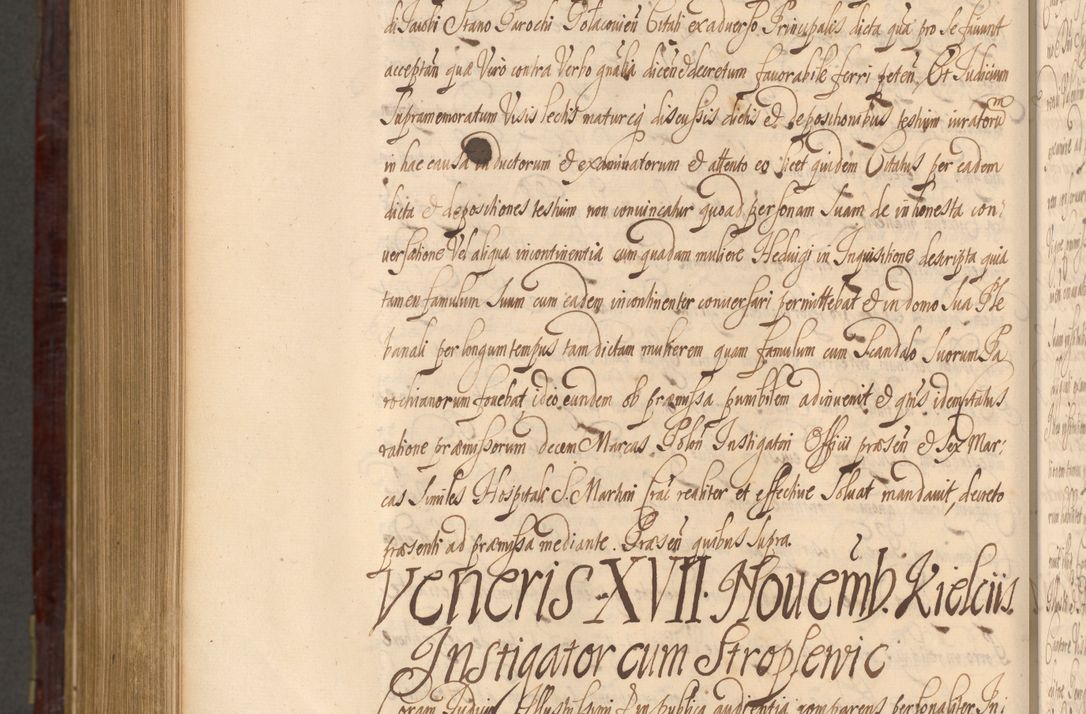 di Jacobi Stano Parochi Polaconien Citati ex adverso Principalis dicta qua pro se faciunt
acceptan quæ Viro contra Verbo gnalia dicen & decretum favorabile ferri peten, Et Iudicium
Supramemoratum Visis lectis matureq discussis dictis & depositionibus testium iuratorum
in hac causa inductorum & examinatorum & attento eo licet quidem Citatus per eadem
dicta & depositiones testium non convincatur quoad personam Suam de inhonesta con:
versatione Vel aliqua incontinentia cum quadam muliere Hedvigi in Inquisitione descripta quia
tamen famulum Suum cum eadem incontinenter conversari permittebat & in domo Sua Ple
banali per longum tempus tam dictam mulierem quam famulum cum Scandalo Suorum Pa
rochianorum fovebat ideo eundem ob præmissa punibilem adinvenit & qtus idem Citatus
ratione præmissorum decem Marcas Polon Instigatori Officii præsen & Sex Mar:
cas Similes Hospitali S. Martini realiter et effective Solvat mandavit, decreto
præsenti ad præmissa mediante. Præsen quibus supra.
Veneris XVII. Novemb. Kielciis.
Instigator cum Stroplewic
Coram Iudicio Illustrissimi & in publica audientia comparens personaliter In: